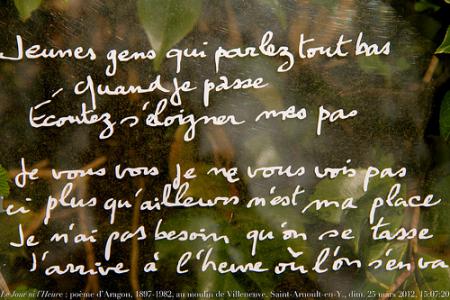 Jeunes gens qui parlez tout bas
Quand je passe
Écoutez s'éloigner mes pas
Je vous vois je ne vous vois pas
ici plus qu'ailleurs n'est ma place
Je n'ai pas besoin qu'on se tasse
J'arrive à l'heure où l'on s'en va
Le Jour ni l'Heure : poème d'Aragon, 1897-1982, au moulin de Villeneuve, Saint-Arnoult-en-Y., dim. 25 mars 2012, 15:07:20